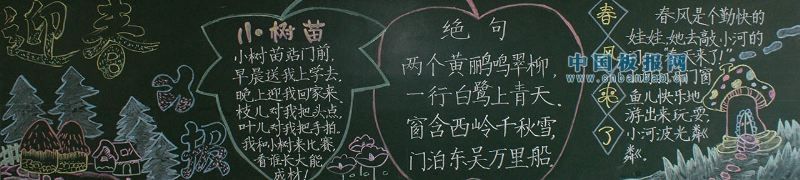 迎春
小报
小树苗
小树苗站门前,
早晨送我上学去.
晚上迎我回家来.
枝儿对我把头点,
叶儿对我把手拍.
我和小树来比赛.
看谁长大能
成材!
绝句
两个黄鹂鸣翠柳,
一行白鹭上青天.
窗含西岭千秋雪,
门泊东吴万里船.
春风来了
春风是个勤快的
娃娃.她去敲小河的
门窗
鱼儿快乐地
游出来玩耍.
小河波光粼
粼.
中国板报网